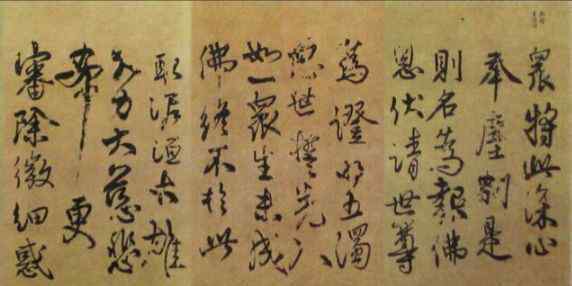 眾將此深心
奉塵剎是
則名為報佛
恩伏請世尊
為證明五濁
惡世誓先入
如一眾生未成
佛終不於此
取泥洹大雄
大力大慈悲
希更
審除微細惑